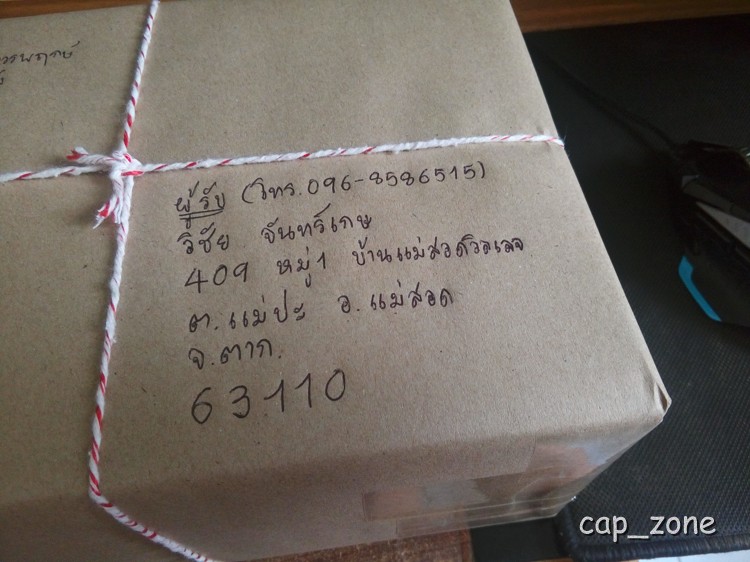 ผู้รับ (โทร.096-8586515)
วิชัย จันทร์เกษ
409 หมู่1 บ้านแม่สอดวิลเลจ
ต.แม่ปะ อ.แม่สอด
จ.ตาก.
63110
cap_zone